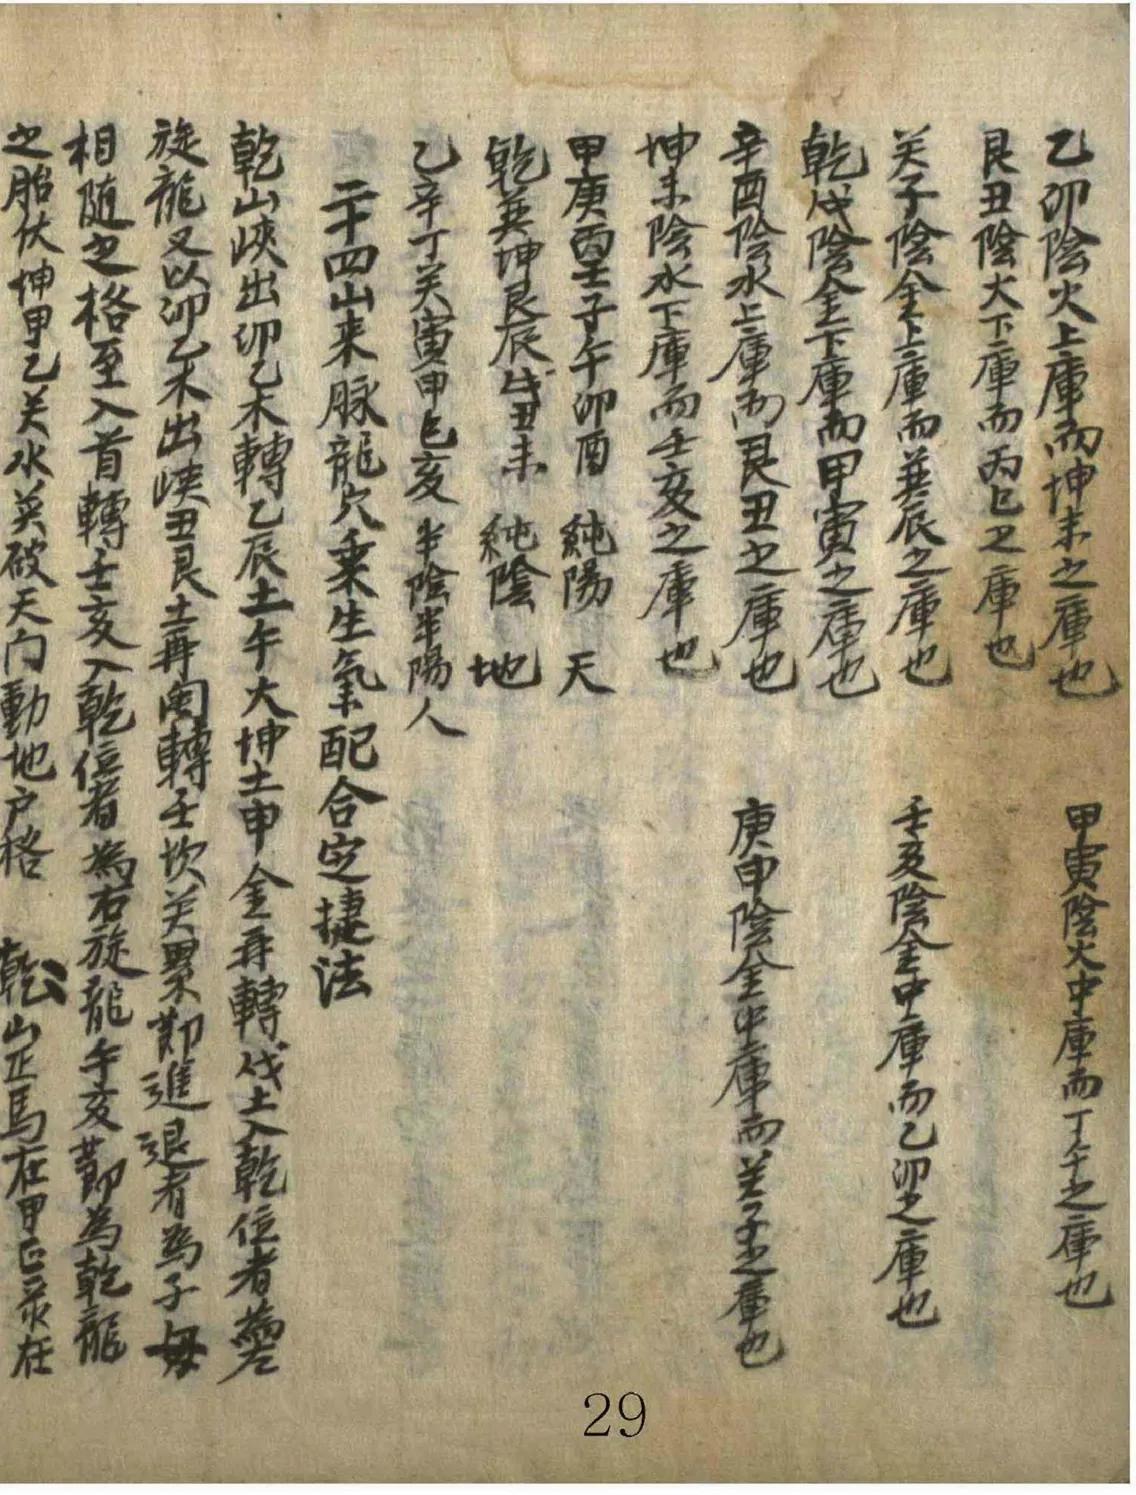 乙卯陰火上庫而坤未之庫也 甲寅陰火中庫而丁午之庫也
艮丑陰火下庫而丙巳之庫也
癸子陰金上庫而巽辰之庫也 壬亥陰金中庫而乙卯之庫也
乾戌陰金下庫而甲寅之庫也
辛酉陰水上庫而艮丑之庫也 庚申陰金中庫而癸子之庫也
坤未陰水下庫而壬亥之庫也
甲庚丙壬子午卯酉 純陽 天
乾巽坤艮辰戌丑未 純陰 地
乙辛丁癸寅申巳亥 半陰半陽人
二十四山来脉龍穴乗生氣配合定捷法
乾山峽出卯乙木轉乙辰土午火坤土申金再轉戌土入乾位者為左
旋龍又以卯乙木出峽丑艮土再 轉壬坎癸 節進退者為子母
相随之格至入首轉壬亥入乾位者為右旋龍午亥節為乾龍
之胎伏坤甲乙癸水巽破天门動地户格 乾山正馬在甲正彔在
29